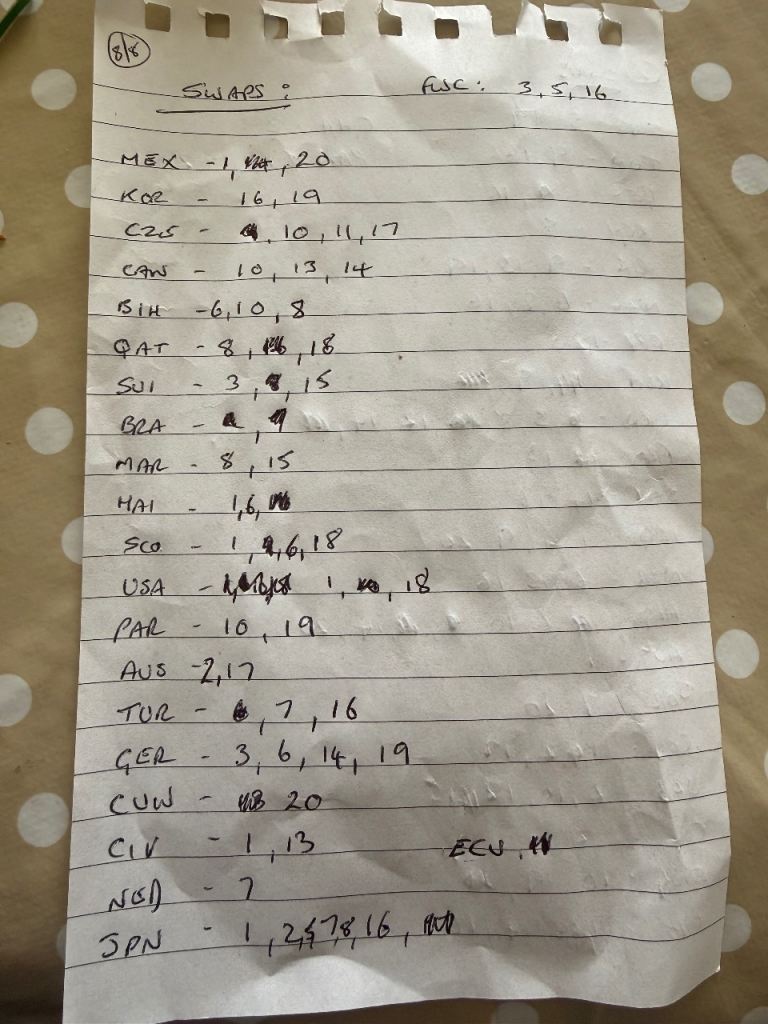 8/8
SWAPS: FWC: 3, 5, 16
MEX - 1, , 20
KOR - 16, 19
CZE - , 10, 11, 17
CAN - 10, 13, 14
BIH - 6, 10, 8
QAT - 8, , 18
SUI - 3, , 15
BRA - ,
MAR - 8, 15
HAI - 1, 6,
SCO - 1, , 6, 18
USA - 1, , 18
PAR - 10, 19
AUS - 2, 17
TUR - , 7, 16
GER - 3, 6, 14, 19
CUW - 20
CIV - 1, 13 ECU,
NED - 7
JPN - 1, 2, 5, 7, 8, 16,